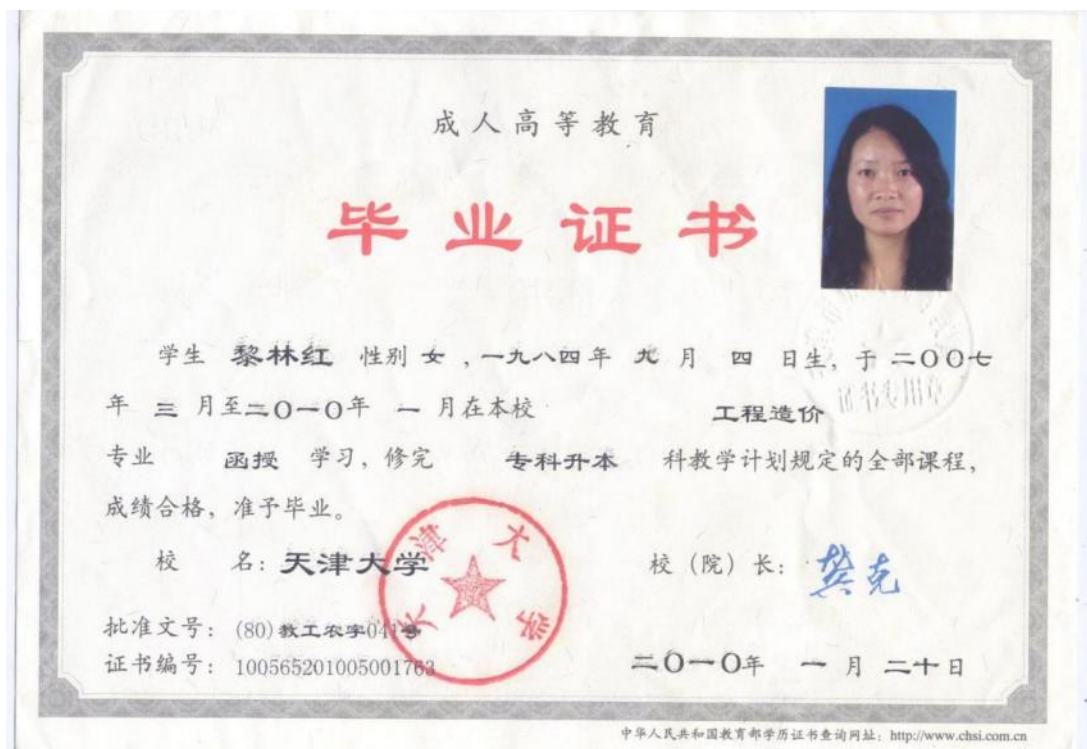 成人高等教育
毕业证书
学生 黎林红 性别 女 ,一九八四年 九 月 四 日生, 于 二〇〇七
年 三 月至二〇一〇年 一 月在本校 工程造价
专业 函授 学习, 修完 专科升本 科教学计划规定的全部课程,
成绩合格, 准予毕业。
校 名: 天津大学
校 (院) 长:
天津大学
批准文号: (80)教工农字041号
证书编号: 100565201005001763
二〇一〇年 一 月 二十日
中华人民共和国教育部学历证书查询网址: http://www.chsi.com.cn